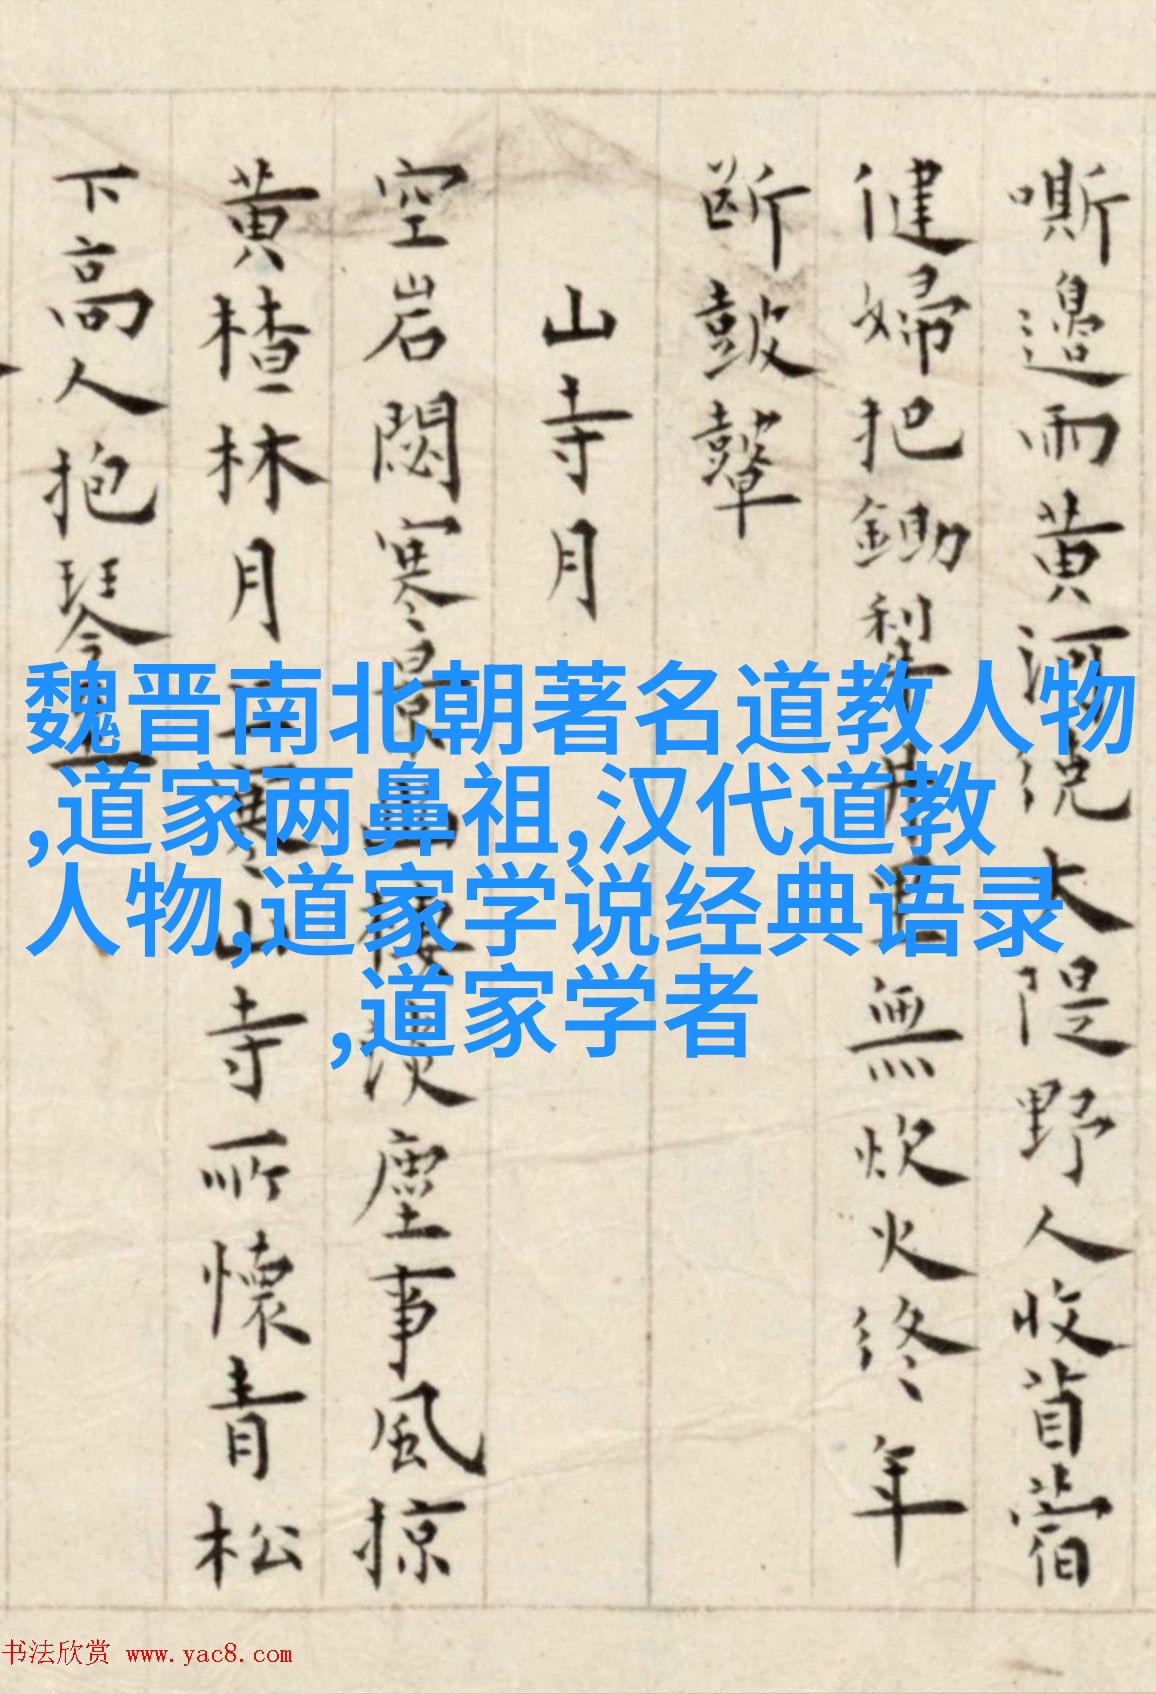 嘶邉雨黄河繞大隄野人收苜蓿
健婦把鋤犁無炊火終年
断鼓鼙
山寺月
空岩閟寒景塵事風掠
黄楂林月山寺所懷青松
下高人抱琴
魏晋南北朝著名道教人物
,道家两鼻祖,汉代道教
人物,道家学说经典语录
,道家学者
书法欣赏 www.yac8.com